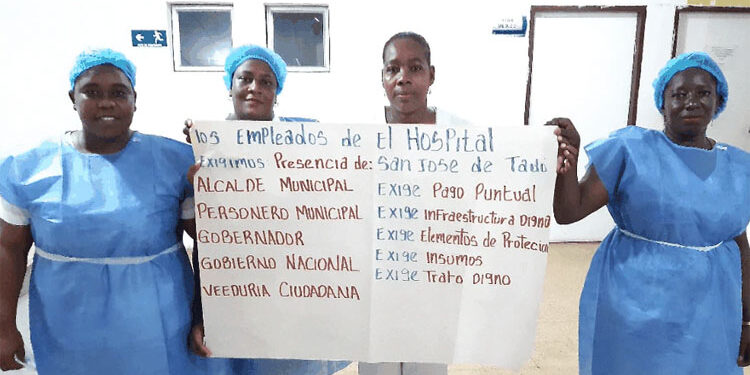 los EMPleados de El HOSPital
San Jose de Tadó
Exigimos Presencia de:
ALCALDE MUNICIPAL
PERSONERO MUNICIPAL
GOBERNADOR
GOBIERNO NACIONAL
VEEDURIA CIUDADANA
Exige Pago Puntual
Exige infraestructura Digna
Exige Elementos de Protección
Exige Insumos
Exige Trato Digno